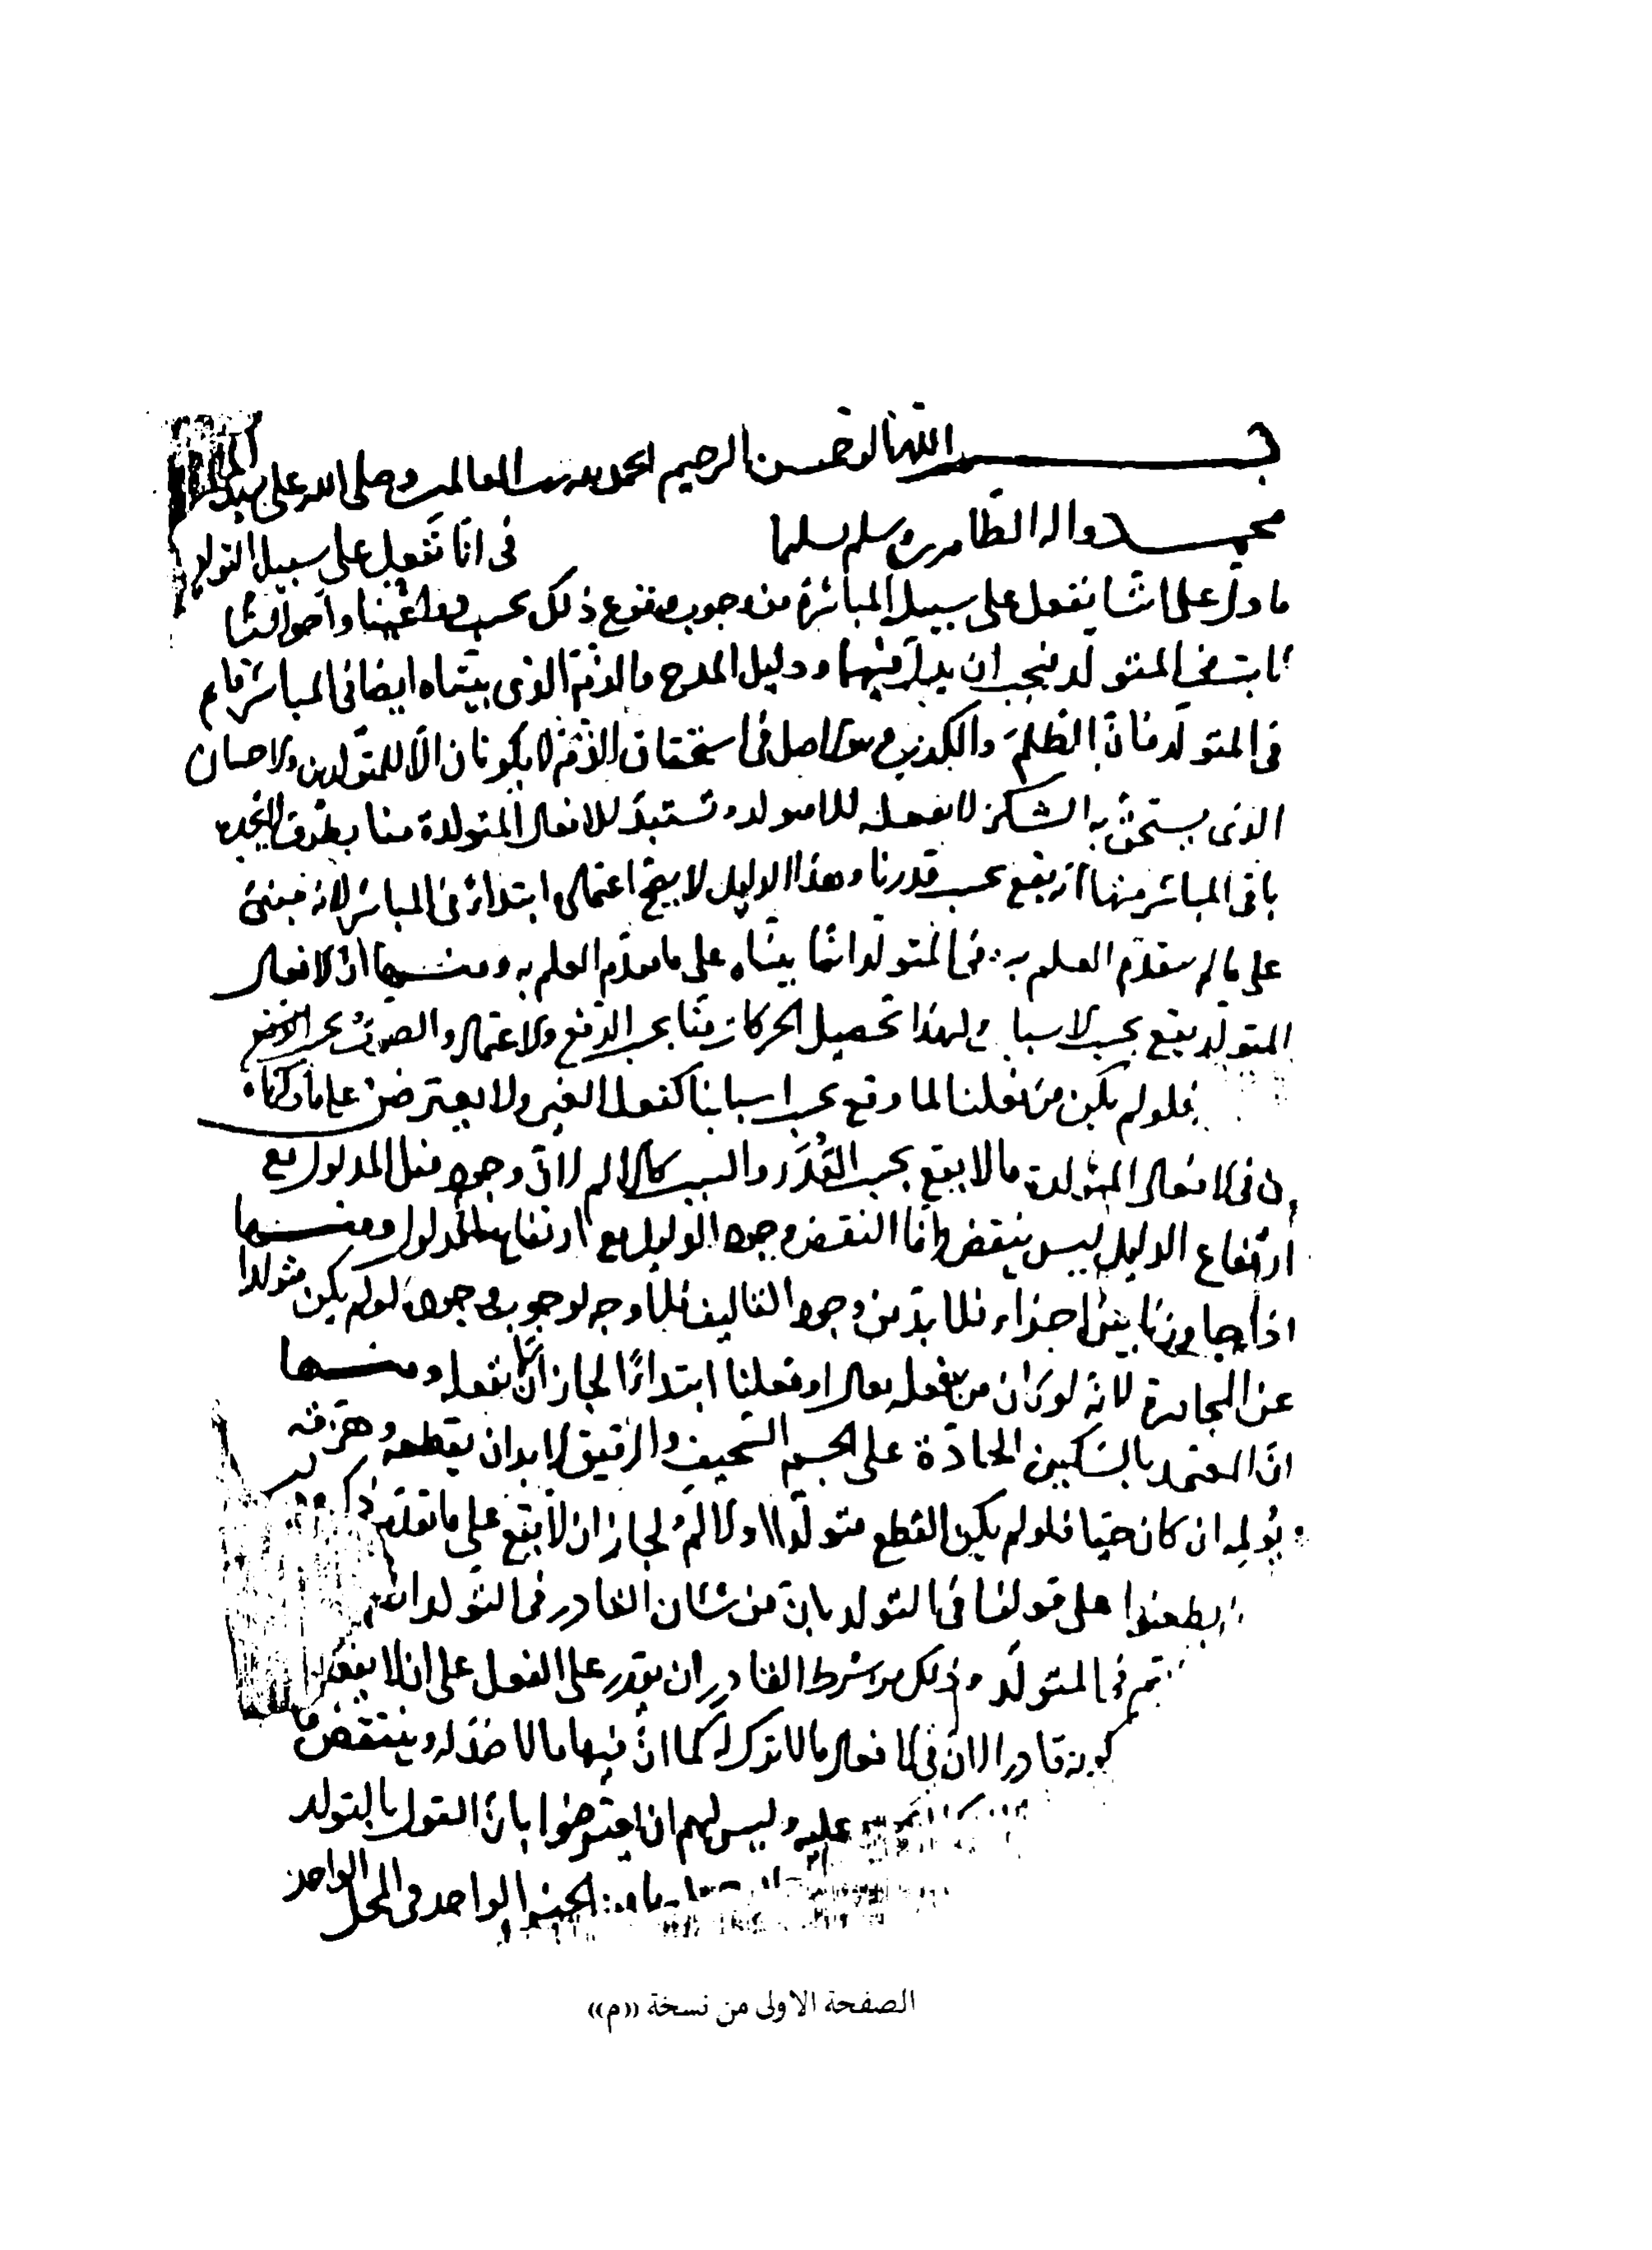 بسم الله الرحمن الرحيم الحمد لله رب العالمين وصلى الله على سيدنا
محمد واله الطاهرين وسلم تسليما في انا نفعل على سبيل التولد
ما دل على اننا نفعل على سبيل المباشرة من وجوب وقوع ذلك بحسب دواعينا واحوالنا
ثابت في المتولد فيجب ان يدل فيهما ودليل المدح والذم الذي بيناه ايضا في المباشر قايم
في المتولد فان الظلم والكذب وهما الاصل في استحقاق الذم لا يكونان الا للمتولدين والاحسان
الذي يستحق به الشكر لا نفعله الا متولدا وتستبد الافعال المتولدة منا بطرق
باقي المباشر منها انه يقع بحسب قدرنا وهذا الدليل لا يصح اعتماله ابتداء في المباشر لانه مبني
على ما لم يتقدم العلم به في المتولد انما بيناه على ما تقدم العلم به ومنها ان الافعال
المتولد يقع بحسب الاسباب ولهذا تحصيل الحركات منا بحسب الدفع والاعتماد والصوت بحسب
فلو لم يكن من فعلنا لما وقع بحسب اسبابنا كفعل الغير ولا يعترض على ما ذكرناه
ان في الافعال المتولدة ما لا يقع بحسب القدر والسبب كالالم لان وجود مثل المدلول مع
ارتفاع الدليل ليس بنقض وانما النقض وجود الدليل مع ارتفاع المدلول ومنها
اذا جاورنا بين اجزاء فلا بد من وجود التاليف فلا وجه لوجوب وجوده لو لم يكن متولدا
عن المجاورة لانه لو كان من فعله تعالى او فعلنا ابتداءا لجاز ان لا نفعله ومنها
ان المعتمد بالسكين الحادة على الجسم السخيف والرقيق لا بد ان يقطعه
يولمه ان كان حيا فلو لم يكن القطع متولدا والالم لجاز ان لا يقع على ما تقدم ذكره
يطعنوا على قولنا في التولد بان من شان القادر في التولد ان
يتم في المتولد وذلك من شرط القادر ان يقدر على الفعل على ان لا يفعل
كونه قادرا لان في الافعال ما لا ترك له كما ان فيها ما لا ضد له وينتقض ما
عليه وليس لهم ان يعترضوا بان القول بالتولد
الجزء الواحد في المحل الواحد
الصفحة الاولى من نسخة «م»